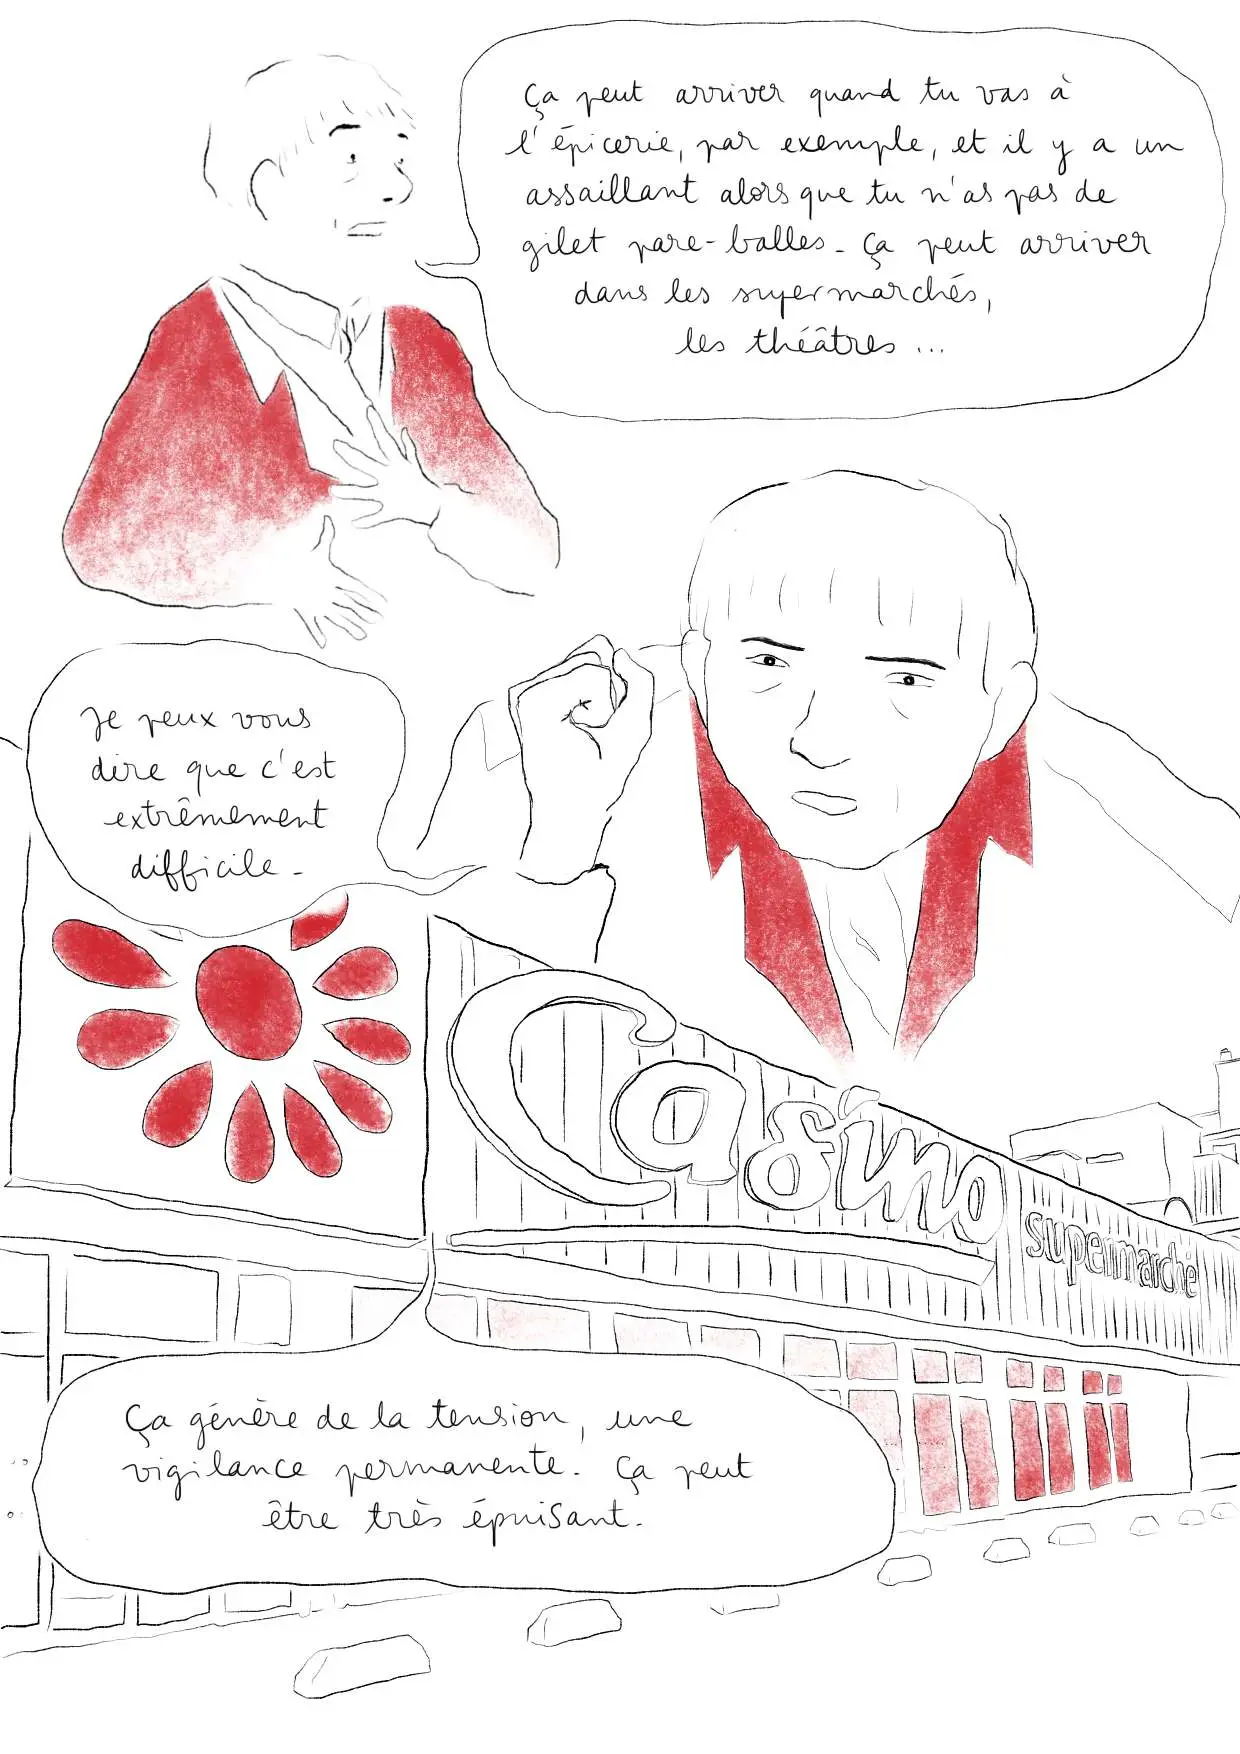 Ça peut arriver quand tu vas à
l'épicerie, par exemple, et il y a un
assaillant alors que tu n'as pas de
gilet pare-balles. Ça peut arriver
dans les supermarchés,
les théâtres ...
Je peux vous
dire que c'est
extrêmement
difficile.
Casino
supermarché
Ça génère de la tension, une
vigilance permanente. Ça peut
être très épuisant.